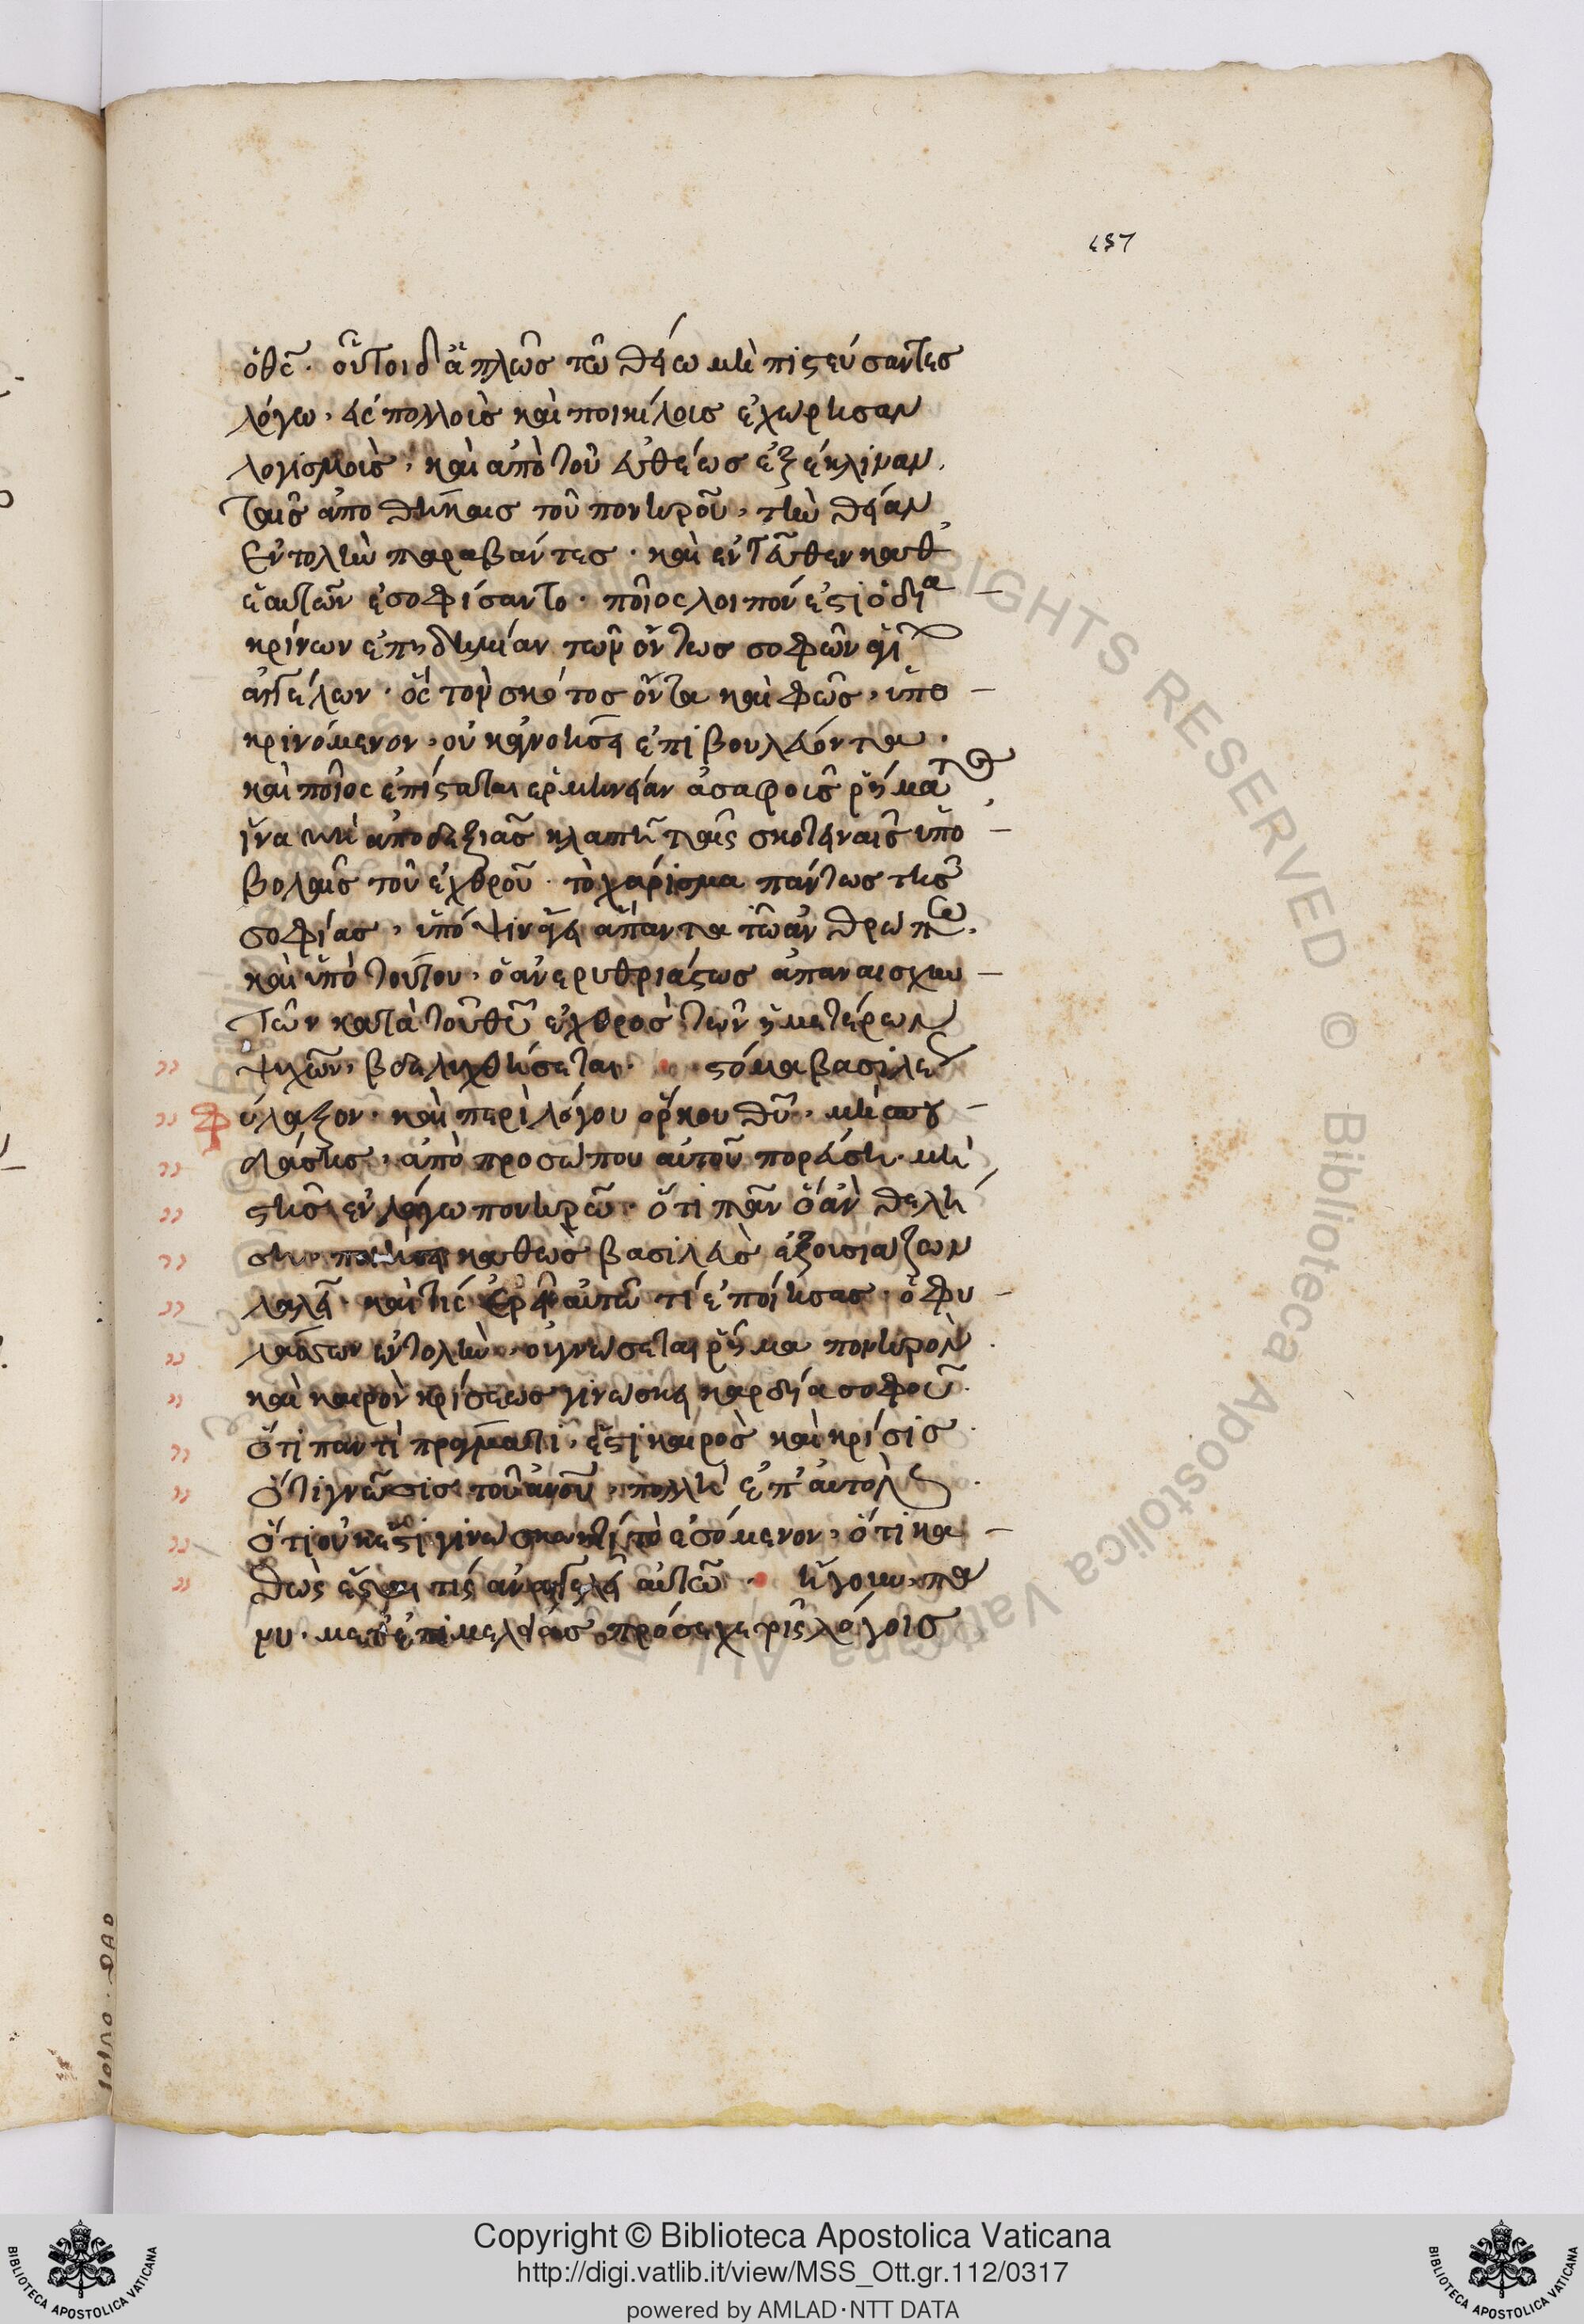 157
ὅθεν. οὗτοι δ' ἁπλῶς τῶ θείω μὴ πιστεύσαντες
λόγω, ἐς πολλοῖς καὶ ποικίλοις ἐχώρησαν
λογισμοῖς, καὶ ἀπὸ τοῦ εὐθέως ἐξέκλιναν.
ταῖς ἀποθήκαις τοῦ πονηροῦ, τὴν θείαν
ἐντολὴν παραβάντες. καὶ ἐντεῦθεν καθ'
ἑαυτῶν ἐσοφίσαντο. ποῖος λοιπόν ἐστι ὁ δια
κρίνων ἐπιδημίαν τῶν ὄντως σοφῶν
ἀγγέλων. ὅς τὸν σκότος ὄντα καὶ φῶς, ὑπο
κρινόμενον, οὐκ ἀνοήσει ἐπιβουλεύοντα.
καὶ ποῖος ἐπίσταται ἑρμηνείαν ἀσαφοῖς ῥήματος
ἵνα μὴ ἀπὸ δεξιᾶς κλαπῆ ταῖς σκοτειναῖς ὑπο
βολαῖς τοῦ ἐχθροῦ. τὸ χάρισμα πάντως τῆς
σοφίας, ὑπόψιν ἄγει ἅπαντα τῶ ἀνθρώπω.
καὶ ὑπὸ τούτου, ὁ ἀνερυθριάστως ἀπαναισχυν
τῶν κατὰ τοῦ θυ ἐχθρὸς τῶν ἡμετέρων
ψυχῶν, βδελυχθήσεται. στόμα βασιλέως
φύλαξον. καὶ περὶ λόγου ὅρκου θυ. μὴ σπου
δάσης, ἀπὸ προσώπου αὐτοῦ πορεύση. μὴ
στῆς ἐν λόγω πονηρῶ. ὅτι πᾶν ὃ ἀν θελή
ση ποιήσει καθὼς βασιλεὺς ἐξουσιάζων
λαλεῖ. καὶ τίς ἐρεῖ αὐτῶ τί ἐποίησας. ὁ φυ
λάσσων ἐντολὴν, οὐ γνώσεται ῥῆμα πονηρὸν.
καὶ καιρὸν κρίσεως γινώσκει καρδία σοφοῦ.
ὅτι παντὶ πράγματι, ἔστι καιρὸς καὶ κρίσις.
ὅτι γνῶσις τοῦ ἀνου, πολλὴ ἐπ' αὐτὸν.
ὅτι οὐκ ἔστι γινώσκων τί τὸ ἐσόμενον, ὅτι κα
θὼς ἔσται τίς ἀναγγελεῖ αὐτῶ. ἡγοῦν, πα
νυ. μετ' ἐπιμελείας πρόσεχε τοῖς λόγοις
Copyright © Biblioteca Apostolica Vaticana
http://digi.vatlib.it/view/MSS_Ott.gr.112/0317
powered by AMLAD·NTT DATA
BIBLIOTECA APOSTOLICA VATICANA
BIBLIOTECA APOSTOLICA VATICANA